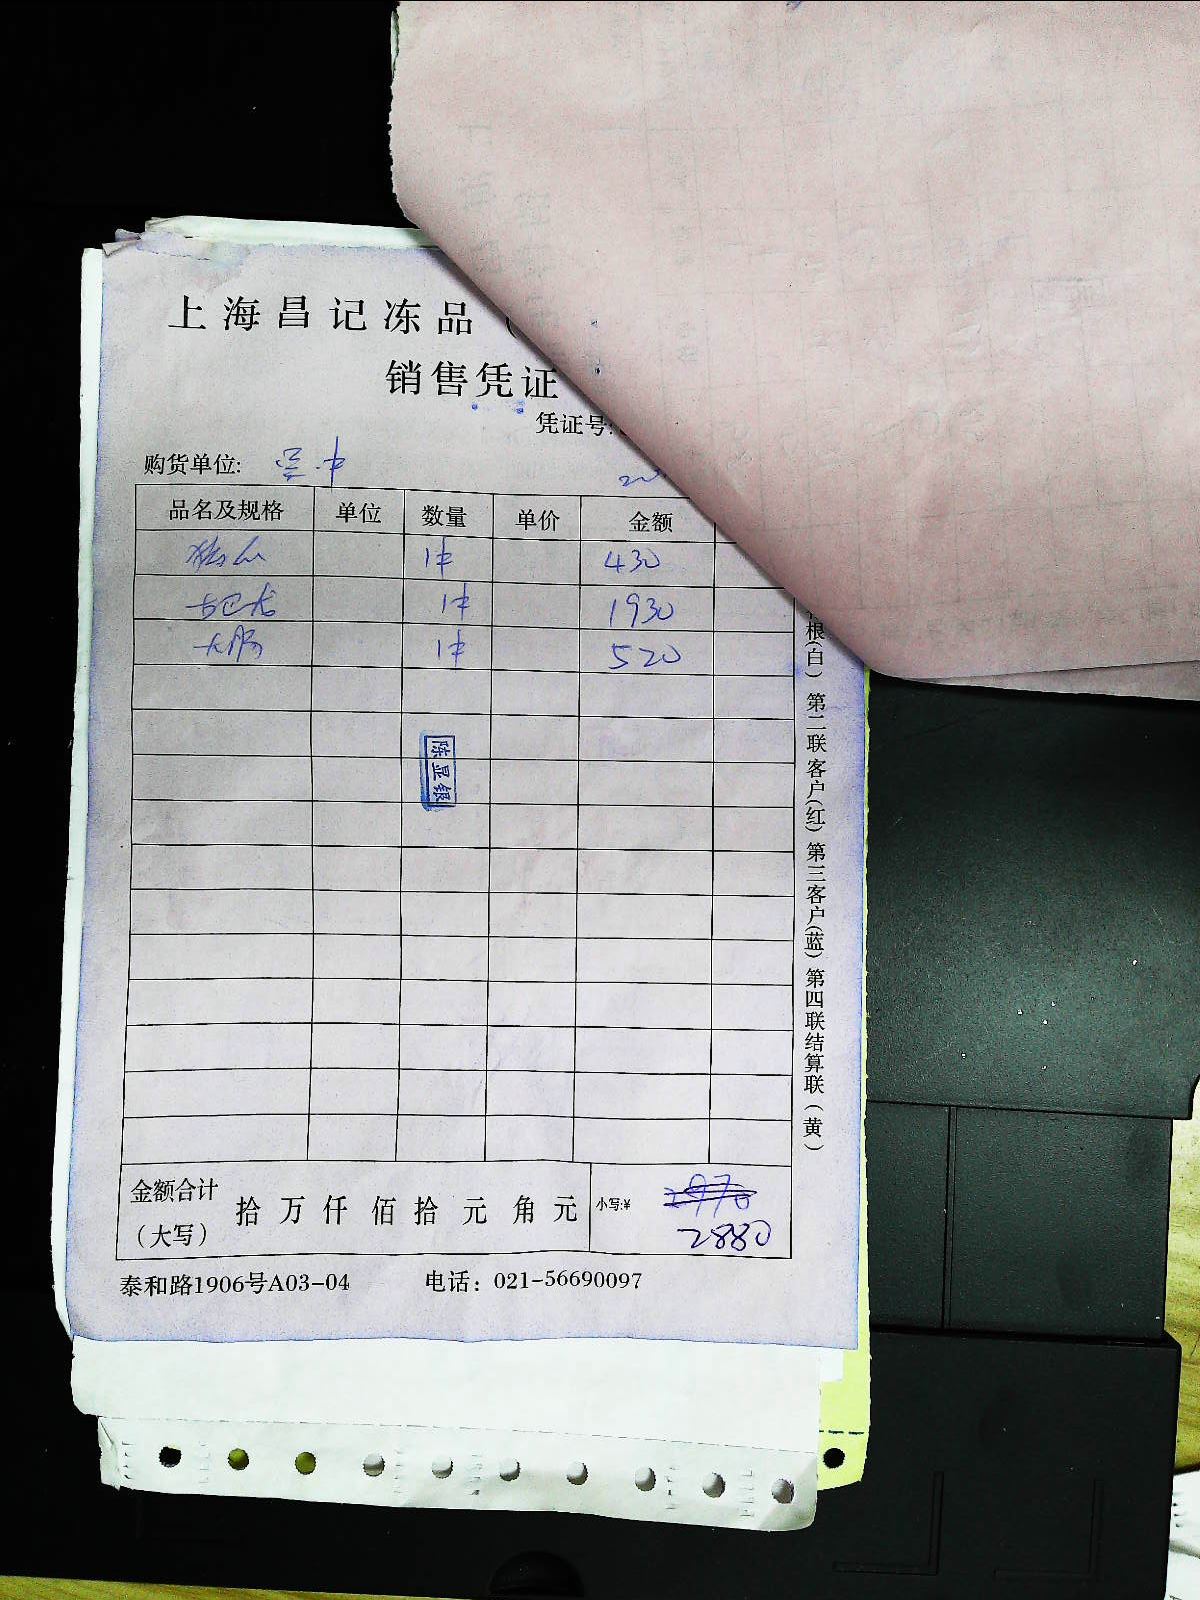 上海昌记冻品（
销售凭证
凭证号:
购货单位:
品名及规格 单位 数量 单价 金额
1件 430
1件 1930
大肠 1件 520
陈显银
根(白) 第二联客户(红) 第三客户(蓝) 第四联结算联(黄)
金额合计(大写) 拾 万 仟 佰 拾 元 角 元 小写:¥ 2970
2880
泰和路1906号A03-04 电话: 021-56690097